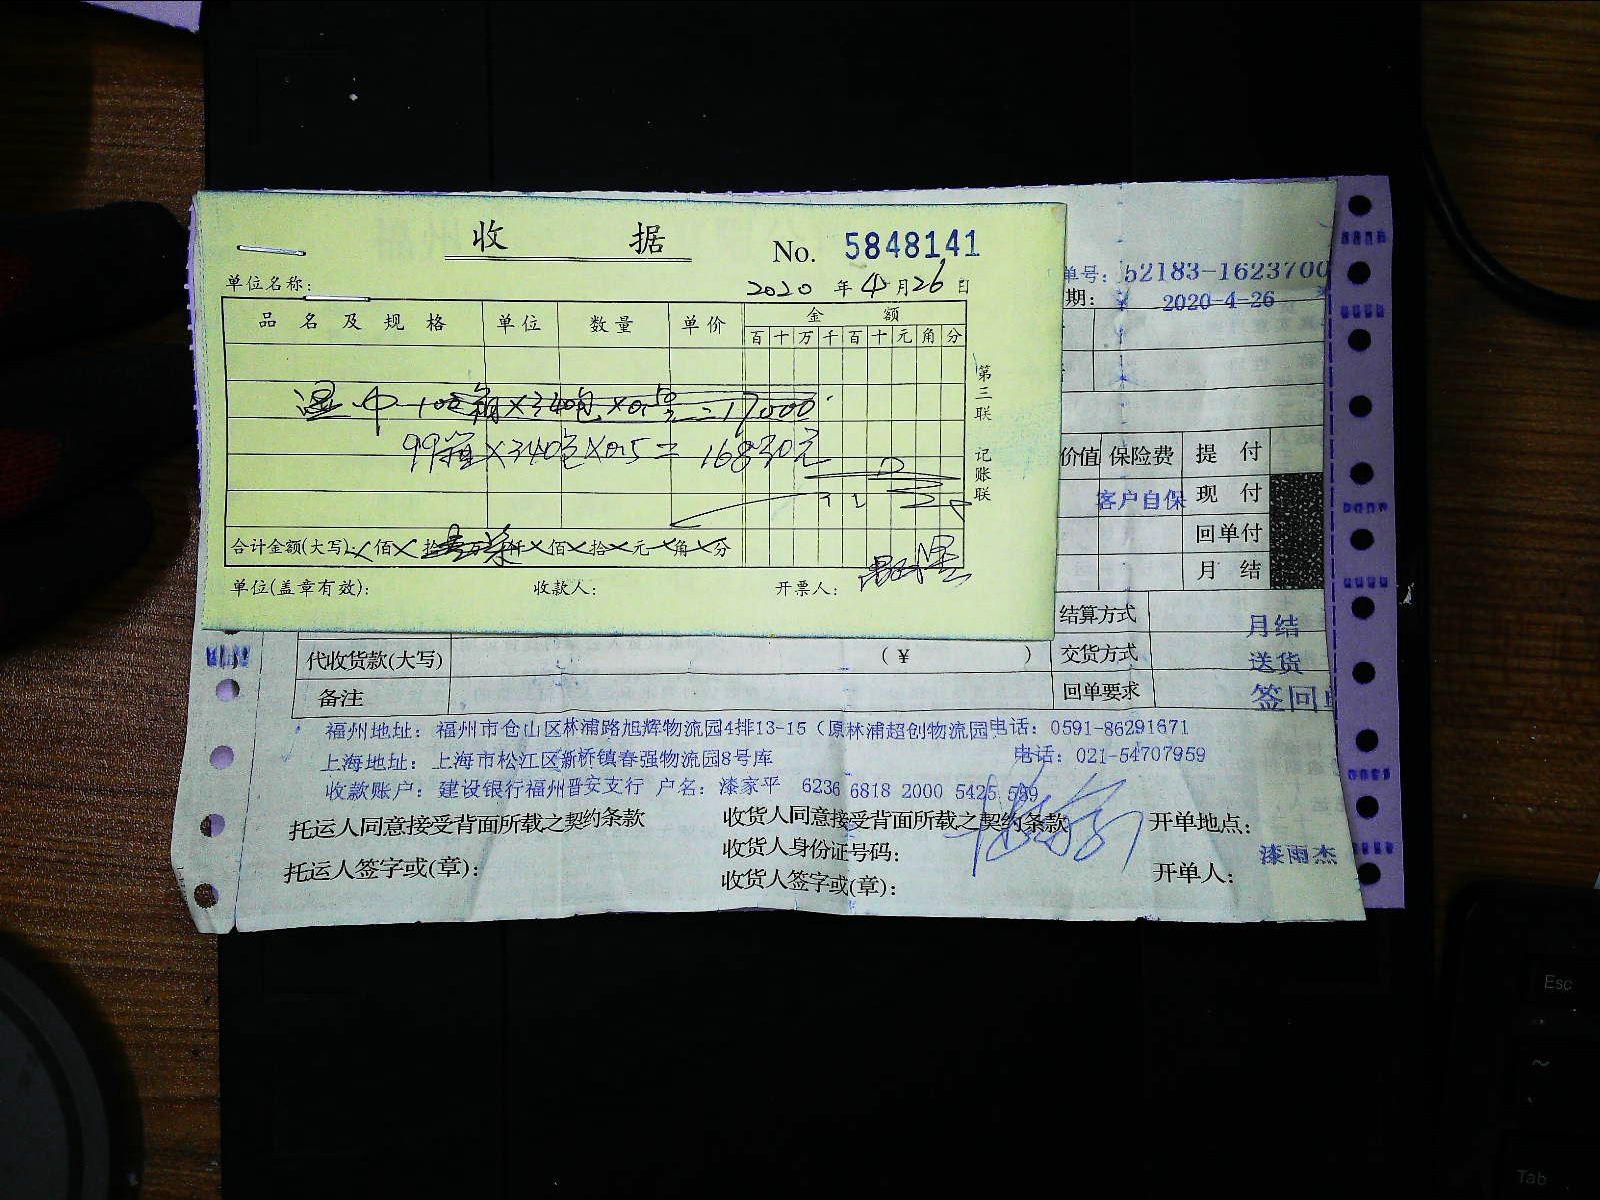 收 据
No. 5848141
单位名称:
2020 年 4 月 26 日
品 名 及 规 格 单位 数量 单价 金 额
百 十 万 千 百 十 元 角 分
湿巾 100箱×340包×0.5元=17000
99箱×340包×0.5= 16830元
合计金额(大写): 佰 拾 万 仟 佰 拾 元 角 分
单位(盖章有效): 收款人: 开票人:
第三联 记账联
单号: 52183-1623700
期: ¥ 2020-4-26
价值 保险费 提 付
客户自保 现 付
回单付
月 结
结算方式 月结
代收货款(大写) (¥ ) 交货方式 送货
备注 回单要求 签回单
福州地址: 福州市仓山区林浦路旭辉物流园4排13-15 (原林浦超创物流园 电话: 0591-86291671
上海地址: 上海市松江区新桥镇春强物流园8号库 电话: 021-54707959
收款账户: 建设银行福州晋安支行 户名: 漆家平 6236 6818 2000 5425 599
托运人同意接受背面所载之契约条款 收货人同意接受背面所载之契约条款 开单地点:
收货人身份证号码:
托运人签字或(章): 收货人签字或(章): 开单人: 漆雨杰
Esc
~
Tab